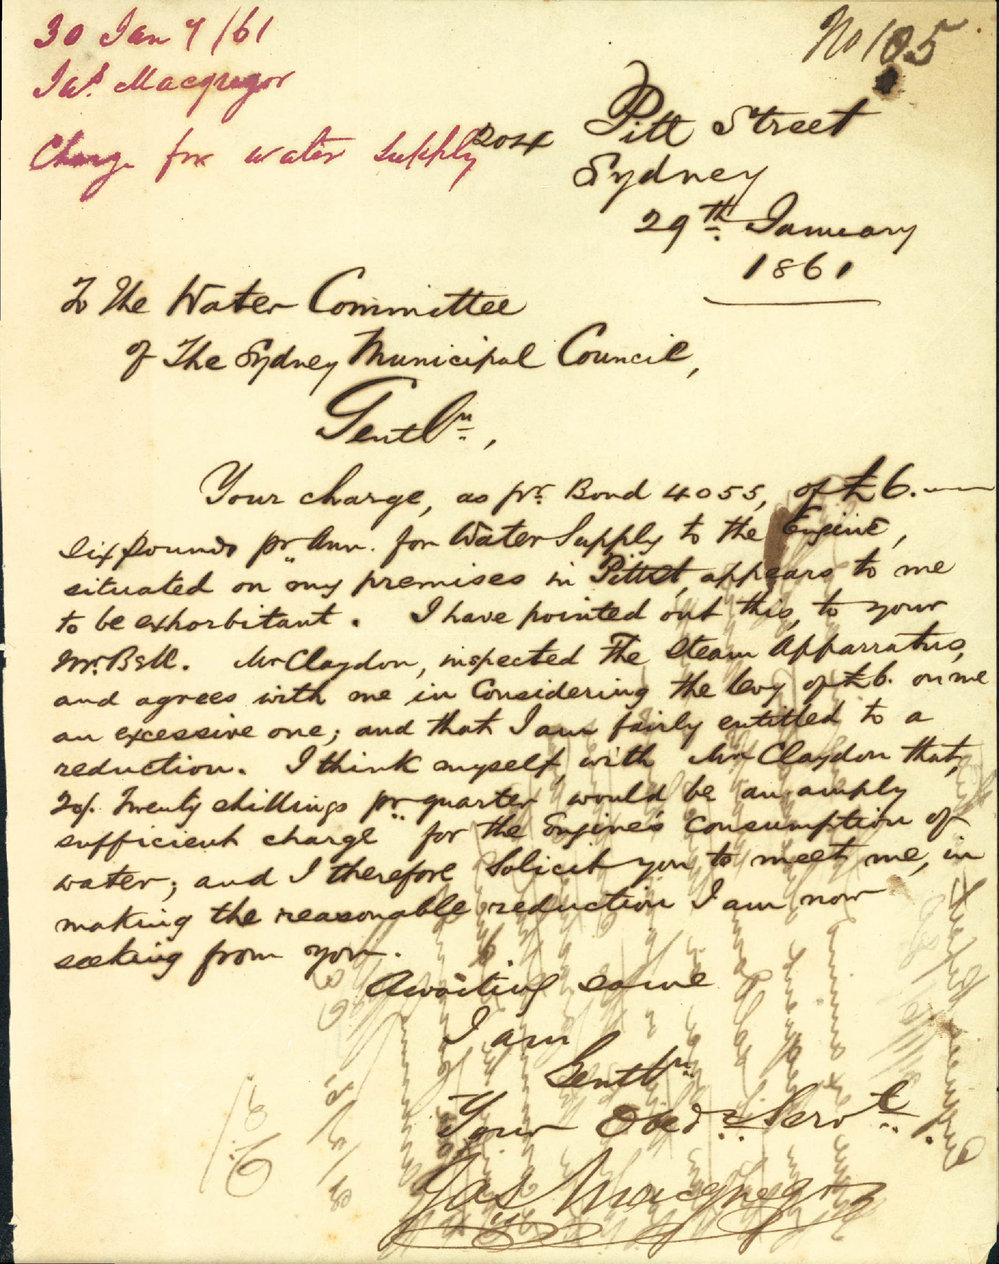 30 Jany /61
Jas. Macgregor
Charge for water supply
No 105
204 Pitt Street
Sydney
29th January
1861
To The Water Committee
of The Sydney Municipal Council,
Gentln,
Your charge, as pr. Bond 4055, of £6.
six pounds pr Ann. for Water Supply to the Engine,
situated on my premises in Pitt St, appears to me
to be exhorbitant. I have pointed out this, to your
Mr. Bell. Mr Claydon, inspected The Steam Apparratus,
and agrees with me in Considering the levy of £6. on me
an excessive one; and that I am fairly entitled to a
reduction. I think myself, with Mr Claydon that,
20/. Twenty shillings pr quarter would be an amply
sufficient charge for the Engine's consumption of
water; and I therefore Solicit you to meet me, in
making the reasonable reduction I am now
seeking from you.
Awaiting same
I am
Gentln.
Your Obedt. Servt.
Jas Macgregor